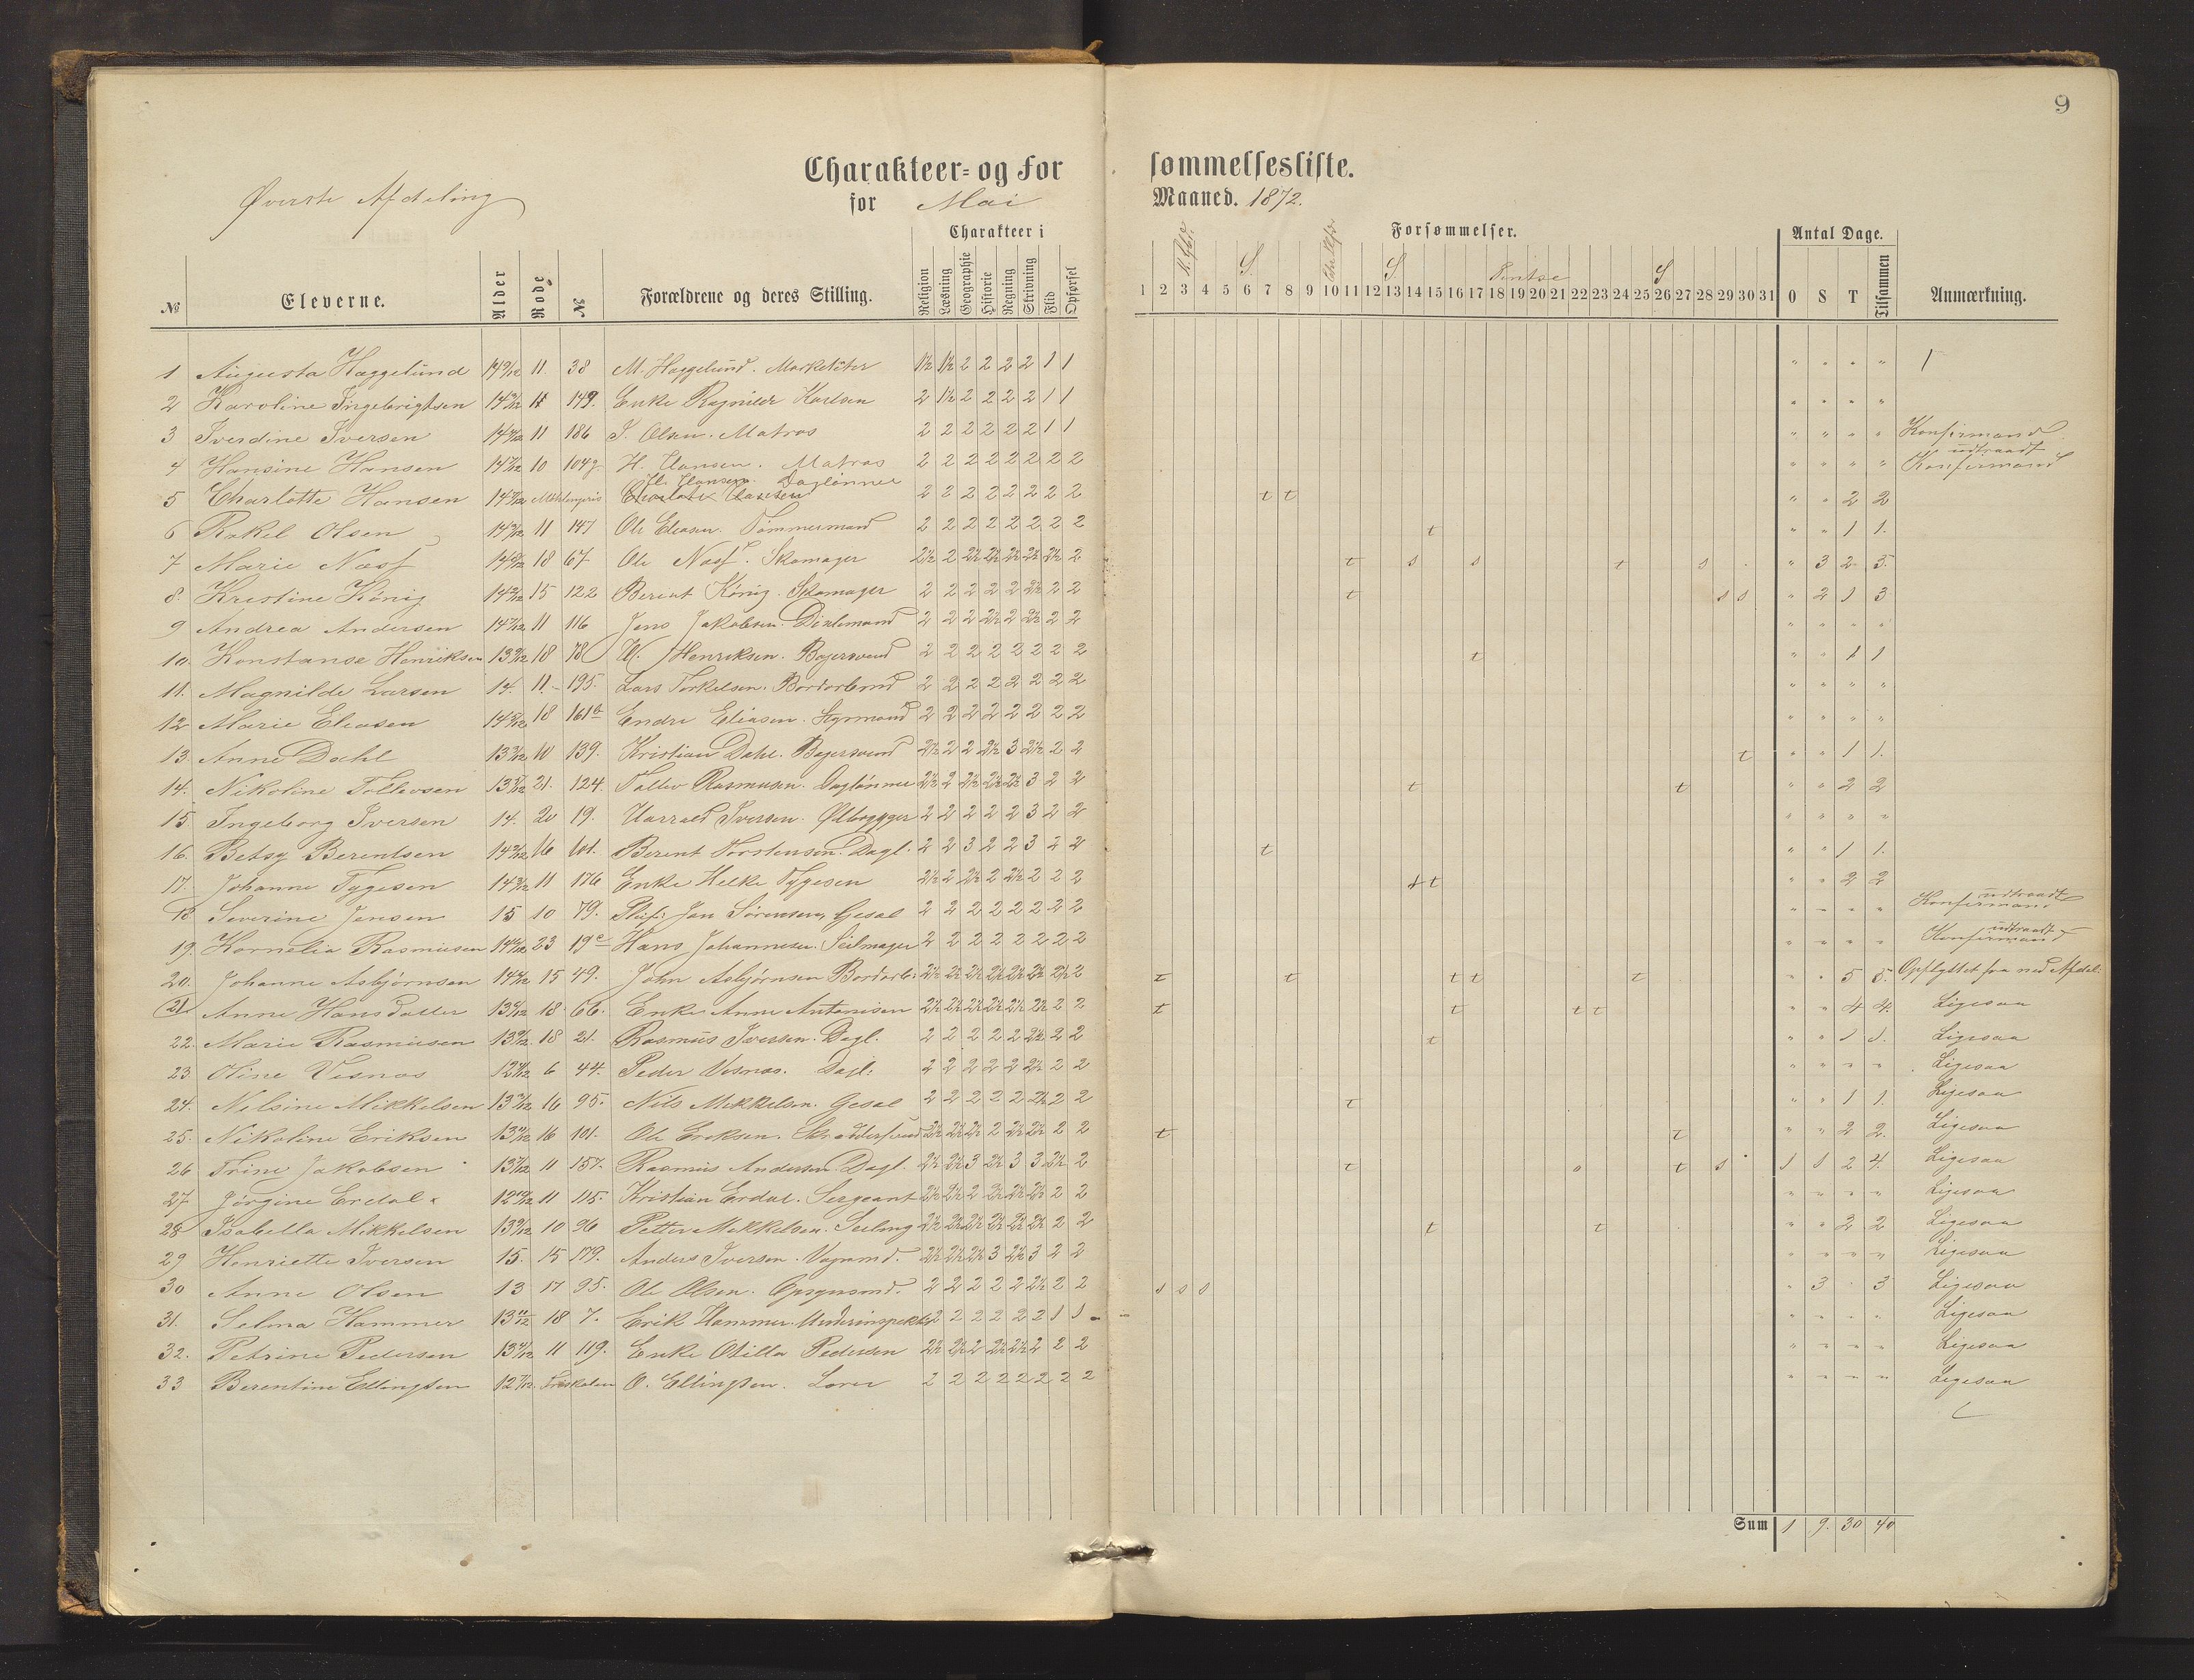 9
Charakteer- og For sømmelsesliste.
Øverste Afdeling
for Mai Maaned. 1872.
Charakteer i Forsømmelser. Antal Dage.
S. S. Pintse S
№ Eleverne. Alder Rode № Forældrene og deres Stilling. Religion Læsning Geographie Historie Regning Skrivning Flid Opførsel 1 2 3 4 5 6 7 8 9 10 11 12 13 14 15 16 17 18 19 20 21 22 23 24 25 26 27 28 29 30 31 O S T Tilsammen Anmærkning.
1 Augusta Haggelund 11. 38 M. Haggelund. 1½ 1½ 2 2 2 2 1 1 " " " "
2 Karoline Ingebrigtsen 11 149. Enke Ragnilde Karlsen 2 1½ 2 2 2 2 1 1 " " " "
3 Iverdine Iversen 11 186 I. Olsen. Matros 2 2 2 2 2 2 1 1 " " " " Konfirmand
udtraadt
4 Hansine Hansen 10 104 H. Hansen. Matros 2 2 2 2 2 2 2 2 " " " " Konfirmand
H. Hansen. Daglønner
5 Charlotte Hansen 2 2 2 2 2 2 2 2 t t " " 2 2
6 Rakel Olsen 11 147 Ole Eliasen. Tømmermand 2 2 2 2 2 2 2 2 t " " 1 1.
7 Marie Næss 18 67 Ole Næss. Skomager 2½ 2 2½ 2½ 2½ 2½ 2½ 2 t s s t s " 3 2 5.
8. Kristine König 15 122 Berent König. Skomager 2 2 2 2 2 2½ 2 2 t s s " 2 1 3
9 Andrea Andersen 11 116 Jens Jakobsen. 2 2 2 2½ 2 2½ 2 2 " " " "
10. Konstanse Henriksen 18 78 Henriksen. Bøjersvend 2 2 2 2 2 2 2 2 t " " 1 1
11. Magnilde Larsen 14. 11. 195. Lars Torkelsen. Bordarbmd 2 2 2 2 2 2 2 2 " " " "
12 Marie Eliasen 18 161b Endre Eliasen. Styrmand 2 2 2 2 2 2 2 2 " " " "
13. Anne Dahl 10 139. Kristian Dahl. Bøjersvend 2½ 2 2 2½ 3 2½ 2 2 t " " 1 1.
14. Nikoline Tollevsen 21. 124. Tollev Rasmusen. Daglønner 2½ 2 2½ 2½ 2½ 3 2 2 t t " " 2 2
15. Ingeborg Iversen 14. 20 19. Harrald Iversen. Ølbrygger 2 2 2 2 2 3 2 2 " " " "
16. Betsy Berentsen 16 101. Berent Torstensen. Dagl. 2 2 3 2 2 3 2 2 t " " 1 1.
17. Johanne Tygesen 11 176 Enke Helke Tygesen 2½ 2 2½ 2 2½ 2 2 2 t t " " 2 2
udtraadt
18 Severine Jensen 15 10 79. Jan Sørensen, Gesel 2 2 2 2 2 2 2 2 " " " " Konfirmand
udtraadt
19. Kornelia Rasmusen 23 19c Hans Johannesen. Seilmager 2 2 2 2 2 2 2 2 " " " " Konfirmand
20. Johanne Asbjørnsen 15 49. John Asbjørnsen Bordarb. 2½ 2½ 2½ 2½ 2½ 2½ 2½ 2 t t t t t " " 5 5. Opflyttet fra ned Afdel:
21. Anne Hansdatter 18 66. Enke Anne Antonisen 2½ 2½ 2½ 2½ 2½ 2½ 2 2 t t t t " " 4 4. Ligesaa
22. Marie Rasmusen 18 21. Rasmus Iversen. Dagl. 2 2 2 2 2 2½ 2 2 t " " 1 1. Ligesaa
23. Oline Vesnæs 6 44. Peder Vesnæs. Dagl: 2 2 2 2 2 2½ 2 2 " " " " Ligesaa
24. Nilsine Mikkelsen 16 95. Nils Mikkelsen. Gesel 2 2 2 2 2 2½ 2 2 t " " 1 1. Ligesaa
25. Nikoline Eriksen 16 101. Ole Eriksen. 2½ 2½ 2½ 2 2½ 2½ 2 2 t t " " 2 2. Ligesaa
26 Trine Jakobsen 11 157. Rasmus Andersen Dagl. 2½ 2½ 3 2½ 3 3 2½ 2 t o t s 1 1 2 4. Ligesaa
27 Jørgine Erdal 11 115. Kristian Erdal. Sergeant 2½ 2½ 2 2½ 2½ 2½ 2 2 " " " " Ligesaa
28 Isabella Mikkelsen 10 96 Petter Mikkelsen. 2½ 2½ 2½ 2½ 2½ 2½ 2 2 t t " " 2 2 Ligesaa
29 Henriette Iversen 15. 15 179. Anders Iversen. Vognmd. 2½ 2½ 2½ 3 2½ 3 2 2 " " " " Ligesaa
30 Anne Olsen 13 17 95. Ole Olsen. 2 2 2 2 2 2½ 2 2 s s s " 3 " 3 Ligesaa
31. Selma Hammer 18 7. Erik Hammer. Underinspektør 2 2 2 2 2 2 1 1 " " " " Ligesaa
32. Petrine Pedersen 11 119. Enke Otilla Pedersen 2½ 2½ 2 2½ 2½ 2 2 2 " " " " Ligesaa
33 Berentine Ellingsen Friskolen O. Ellingsen. Lærer 2 2 2 2 2 2 2 2 " " " " Ligesaa
Sum 1 9. 30 40